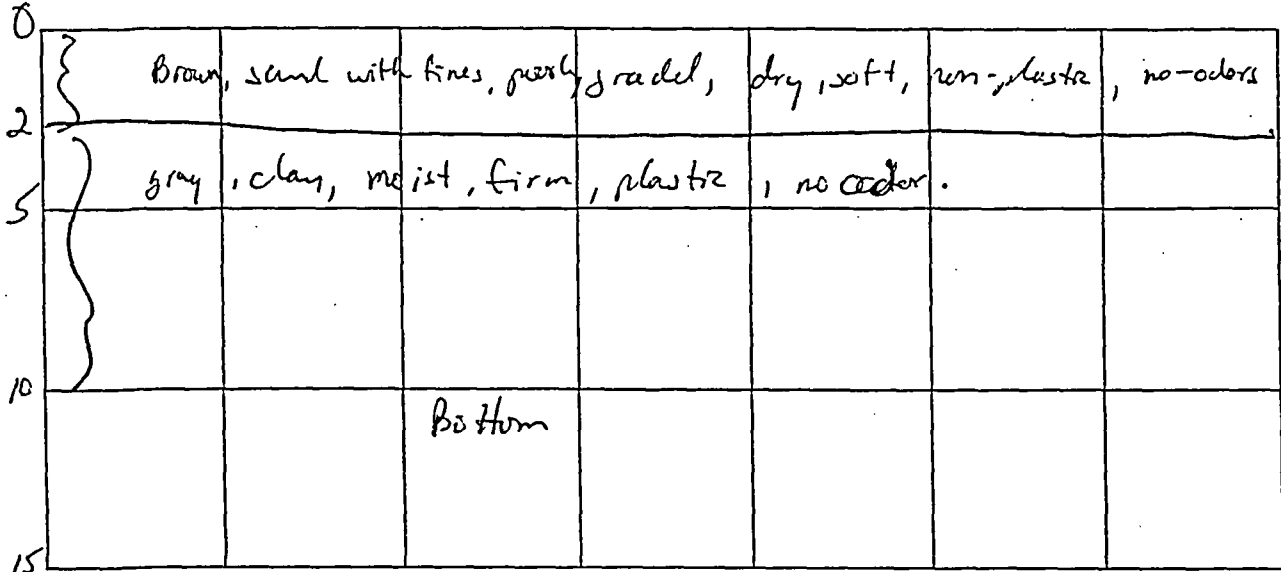 0
Brown, sand with fines, poorly graded, dry, soft, non-plastic, no-odors
2
gray, clay, moist, firm, plastic, no odor.
5
10
Bottom
15